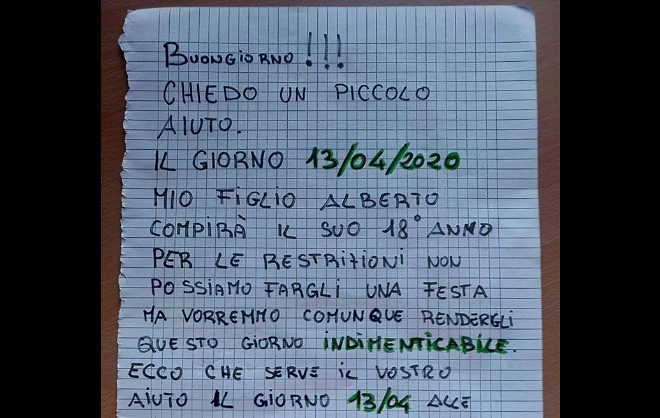 BUONGIORNO!!!
CHIEDO UN PICCOLO
AIUTO.
IL GIORNO 13/04/2020
MIO FIGLIO ALBERTO
COMPIRÀ IL SUO 18° ANNO
PER LE RESTRIZIONI NON
POSSIAMO FARGLI UNA FESTA
MA VORREMMO COMUNQUE RENDERGLI
QUESTO GIORNO INDIMENTICABILE.
ECCO CHE SERVE IL VOSTRO
AIUTO IL GIORNO 13/04 ALLE